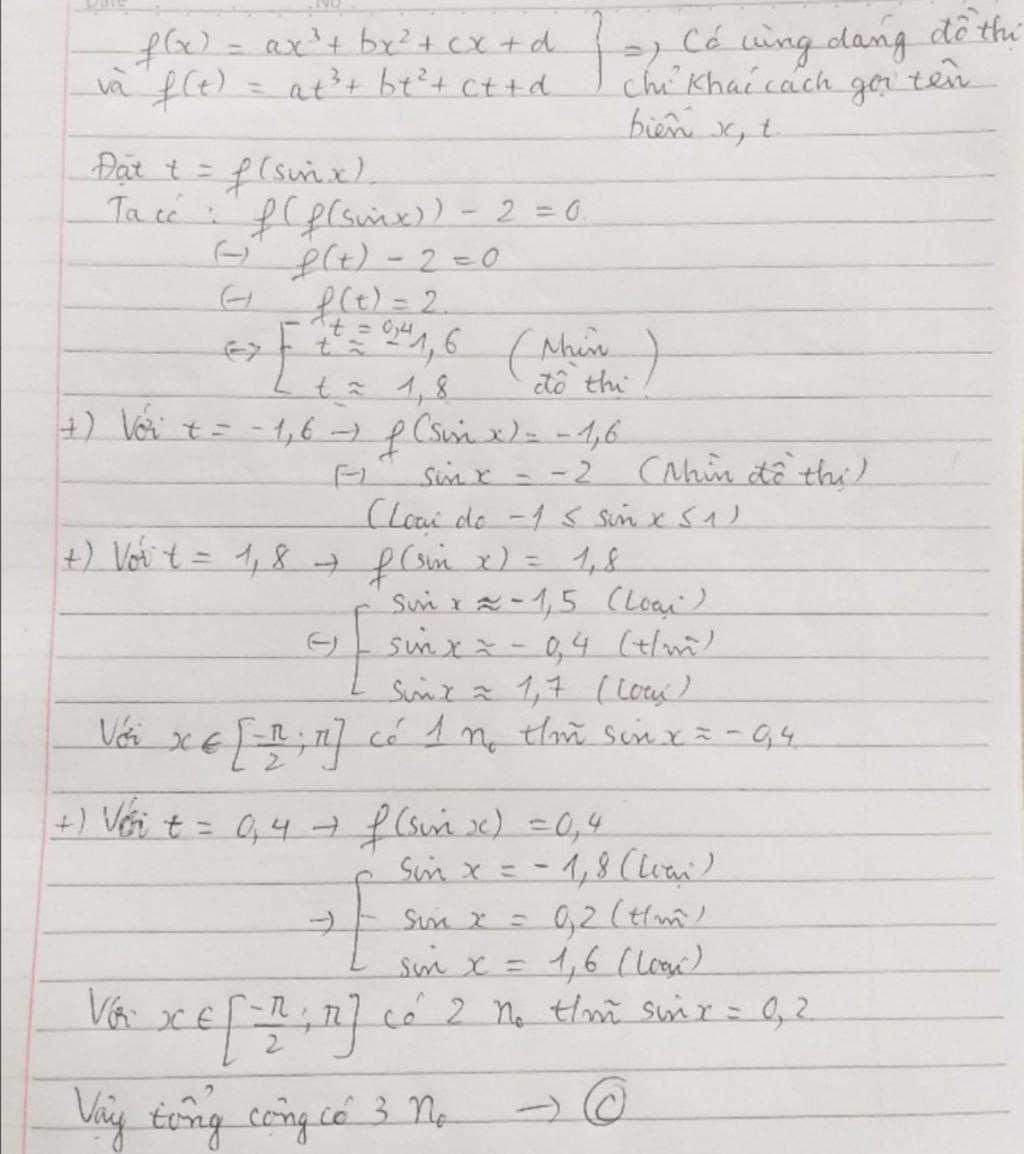 Date No
f(x) = ax³ + bx² + cx + d } => Có cùng dáng đồ thị
và f(t) = at³ + bt² + ct + d chỉ khác cách gọi tên
biến x, t.
Đặt t = f(sin x).
Ta có : f(f(sin x)) - 2 = 0.
(-) f(t) - 2 = 0
(-) f(t) = 2.
<=> [ t = 0,4
t ≈ -1,6 (Nhìn
t ≈ 1,8 đồ thị)
+) Với t = -1,6 → f(sin x) = -1,6
(-) sin x = -2 (Nhìn đồ thị)
(Loại do -1 ≤ sin x ≤ 1)
+) Với t = 1,8 → f(sin x) = 1,8
sin x ≈ -1,5 (Loại)
(-) [ sin x ≈ - 0,4 (t/m)
sin x ≈ 1,7 (Loại)
Với x ∈ [-π/2 ; π] có 1 n₀ t/m sin x ≈ - 0,4.
+) Với t = 0,4 → f(sin x) = 0,4
sin x = -1,8 (Loại)
→ [ sin x = 0,2 (t/m)
sin x = 1,6 (Loại)
Với x ∈ [-π/2 ; π] có 2 n₀ t/m sin x = 0,2.
Vậy tổng cộng có 3 n₀ → Ⓒ